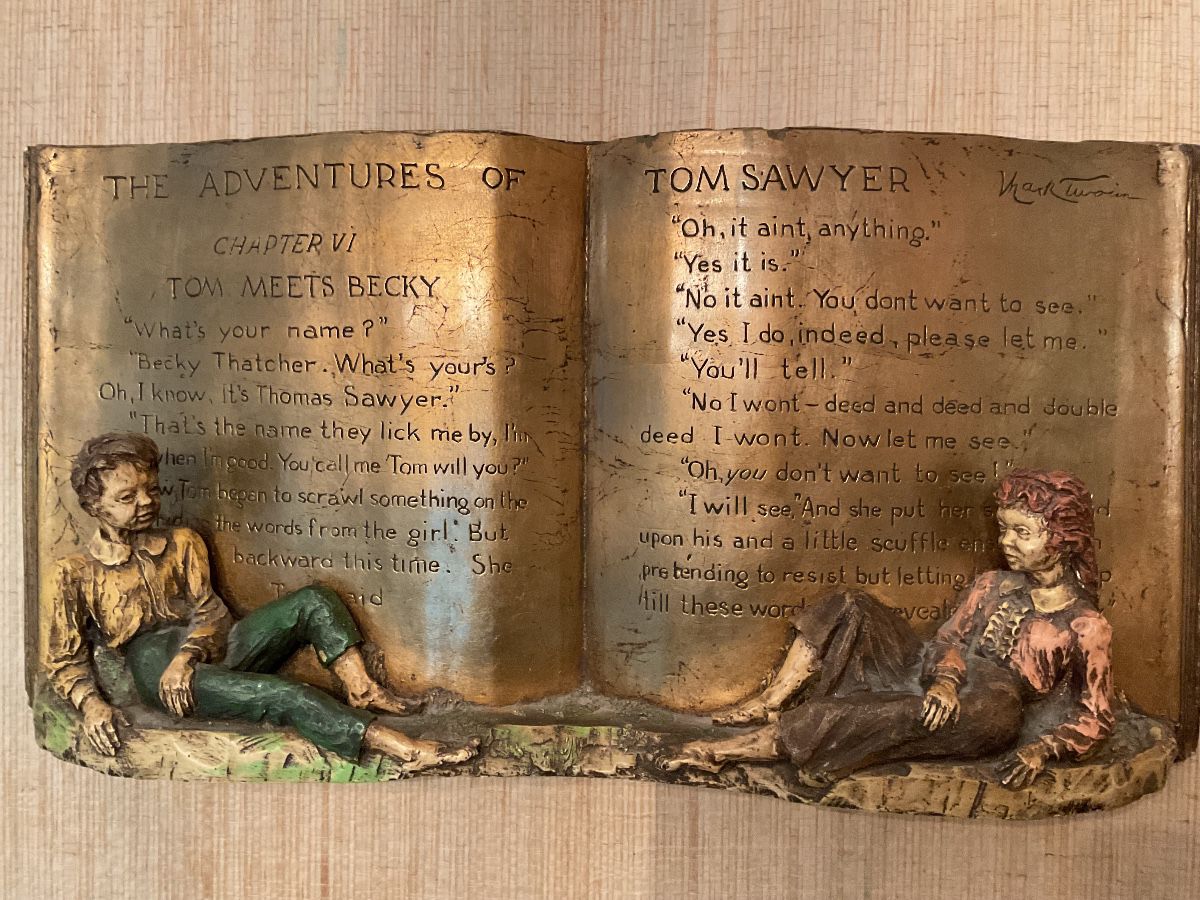 THE ADVENTURES OF
CHAPTER VI
TOM MEETS BECKY
"What's your name?"
"Becky Thatcher. What's your's?
Oh, I know. It's Thomas Sawyer."
"That's the name they lick me by, I'm
when I'm good. You call me Tom will you?"
Tom began to scrawl something on the
the words from the girl. But
backward this time. She
TOM SAWYER Mark Twain
"Oh, it aint, anything."
"Yes it is."
"No it aint. You dont want to see."
"Yes I do, indeed, please let me."
"You'll tell."
"No I wont – deed and deed and double
deed I wont. Now let me see."
"Oh, you don't want to see!"
"I will see," And she put her
upon his and a little scuffle
pretending to resist but letting
till these